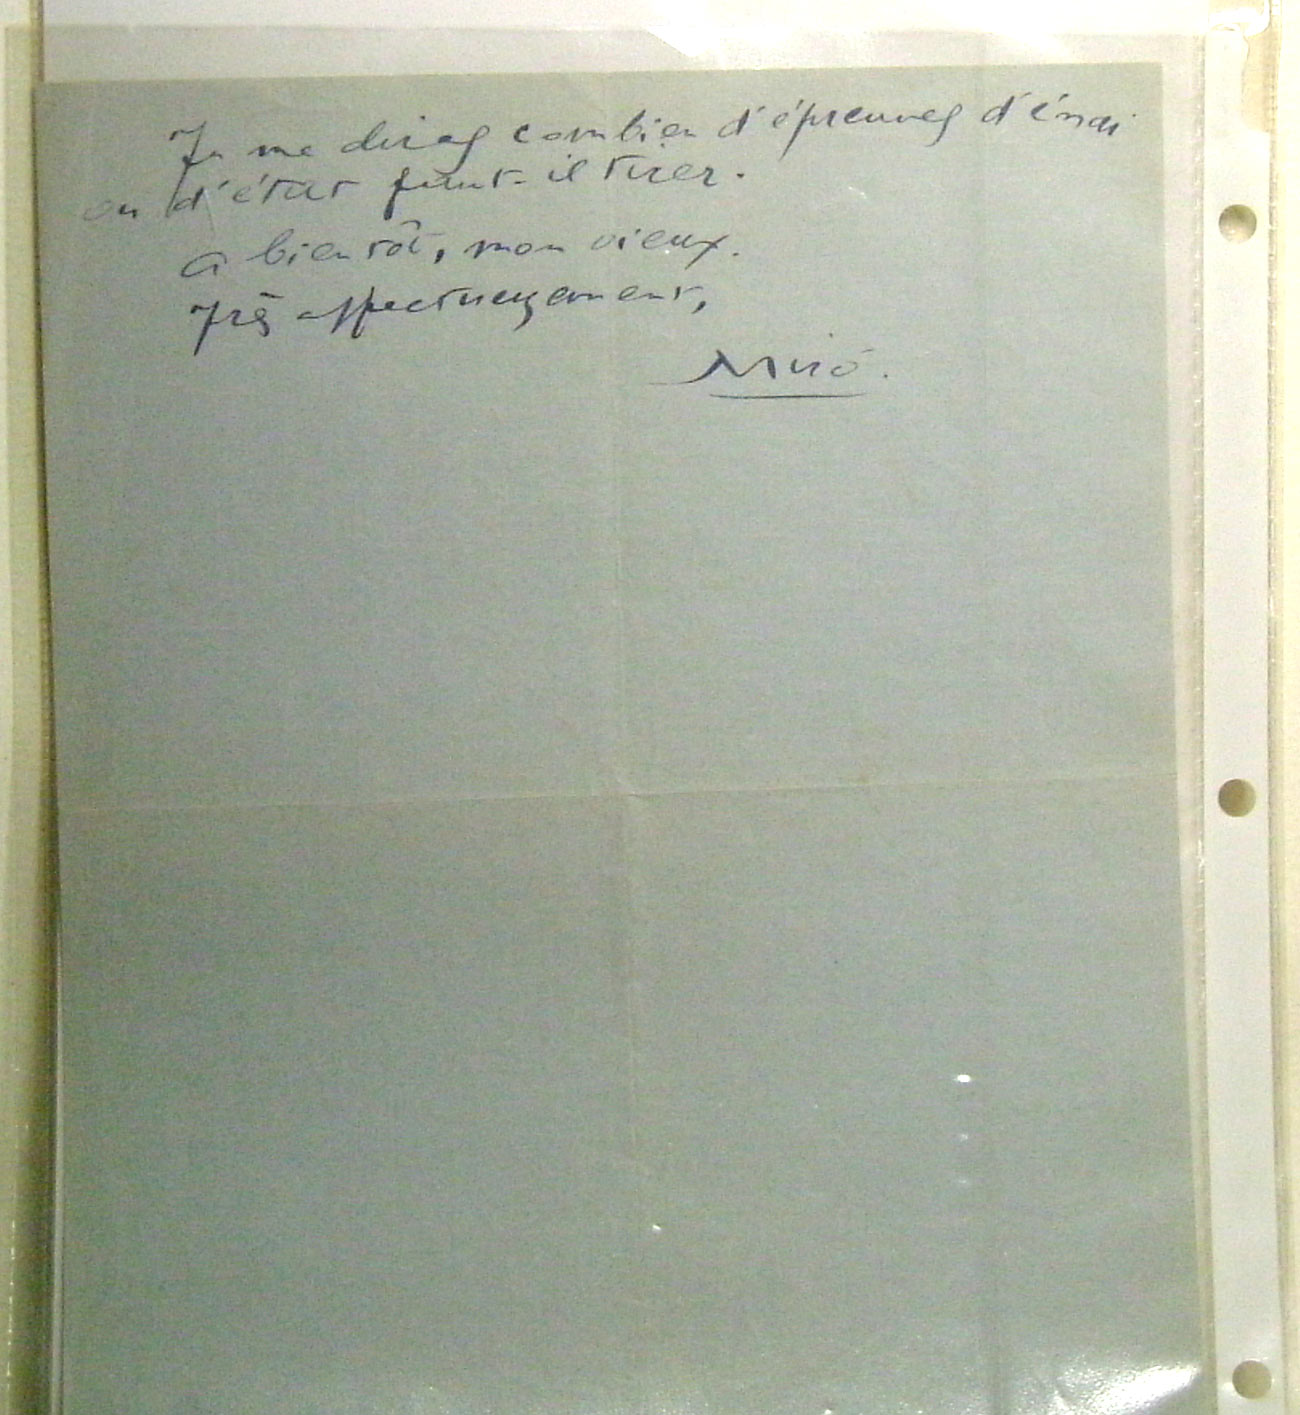 Tu me diras combien d'épreuves d'essai
ou d'état faut-il tirer.
A bientôt, mon vieux.
Très affectueusement,
Miró.